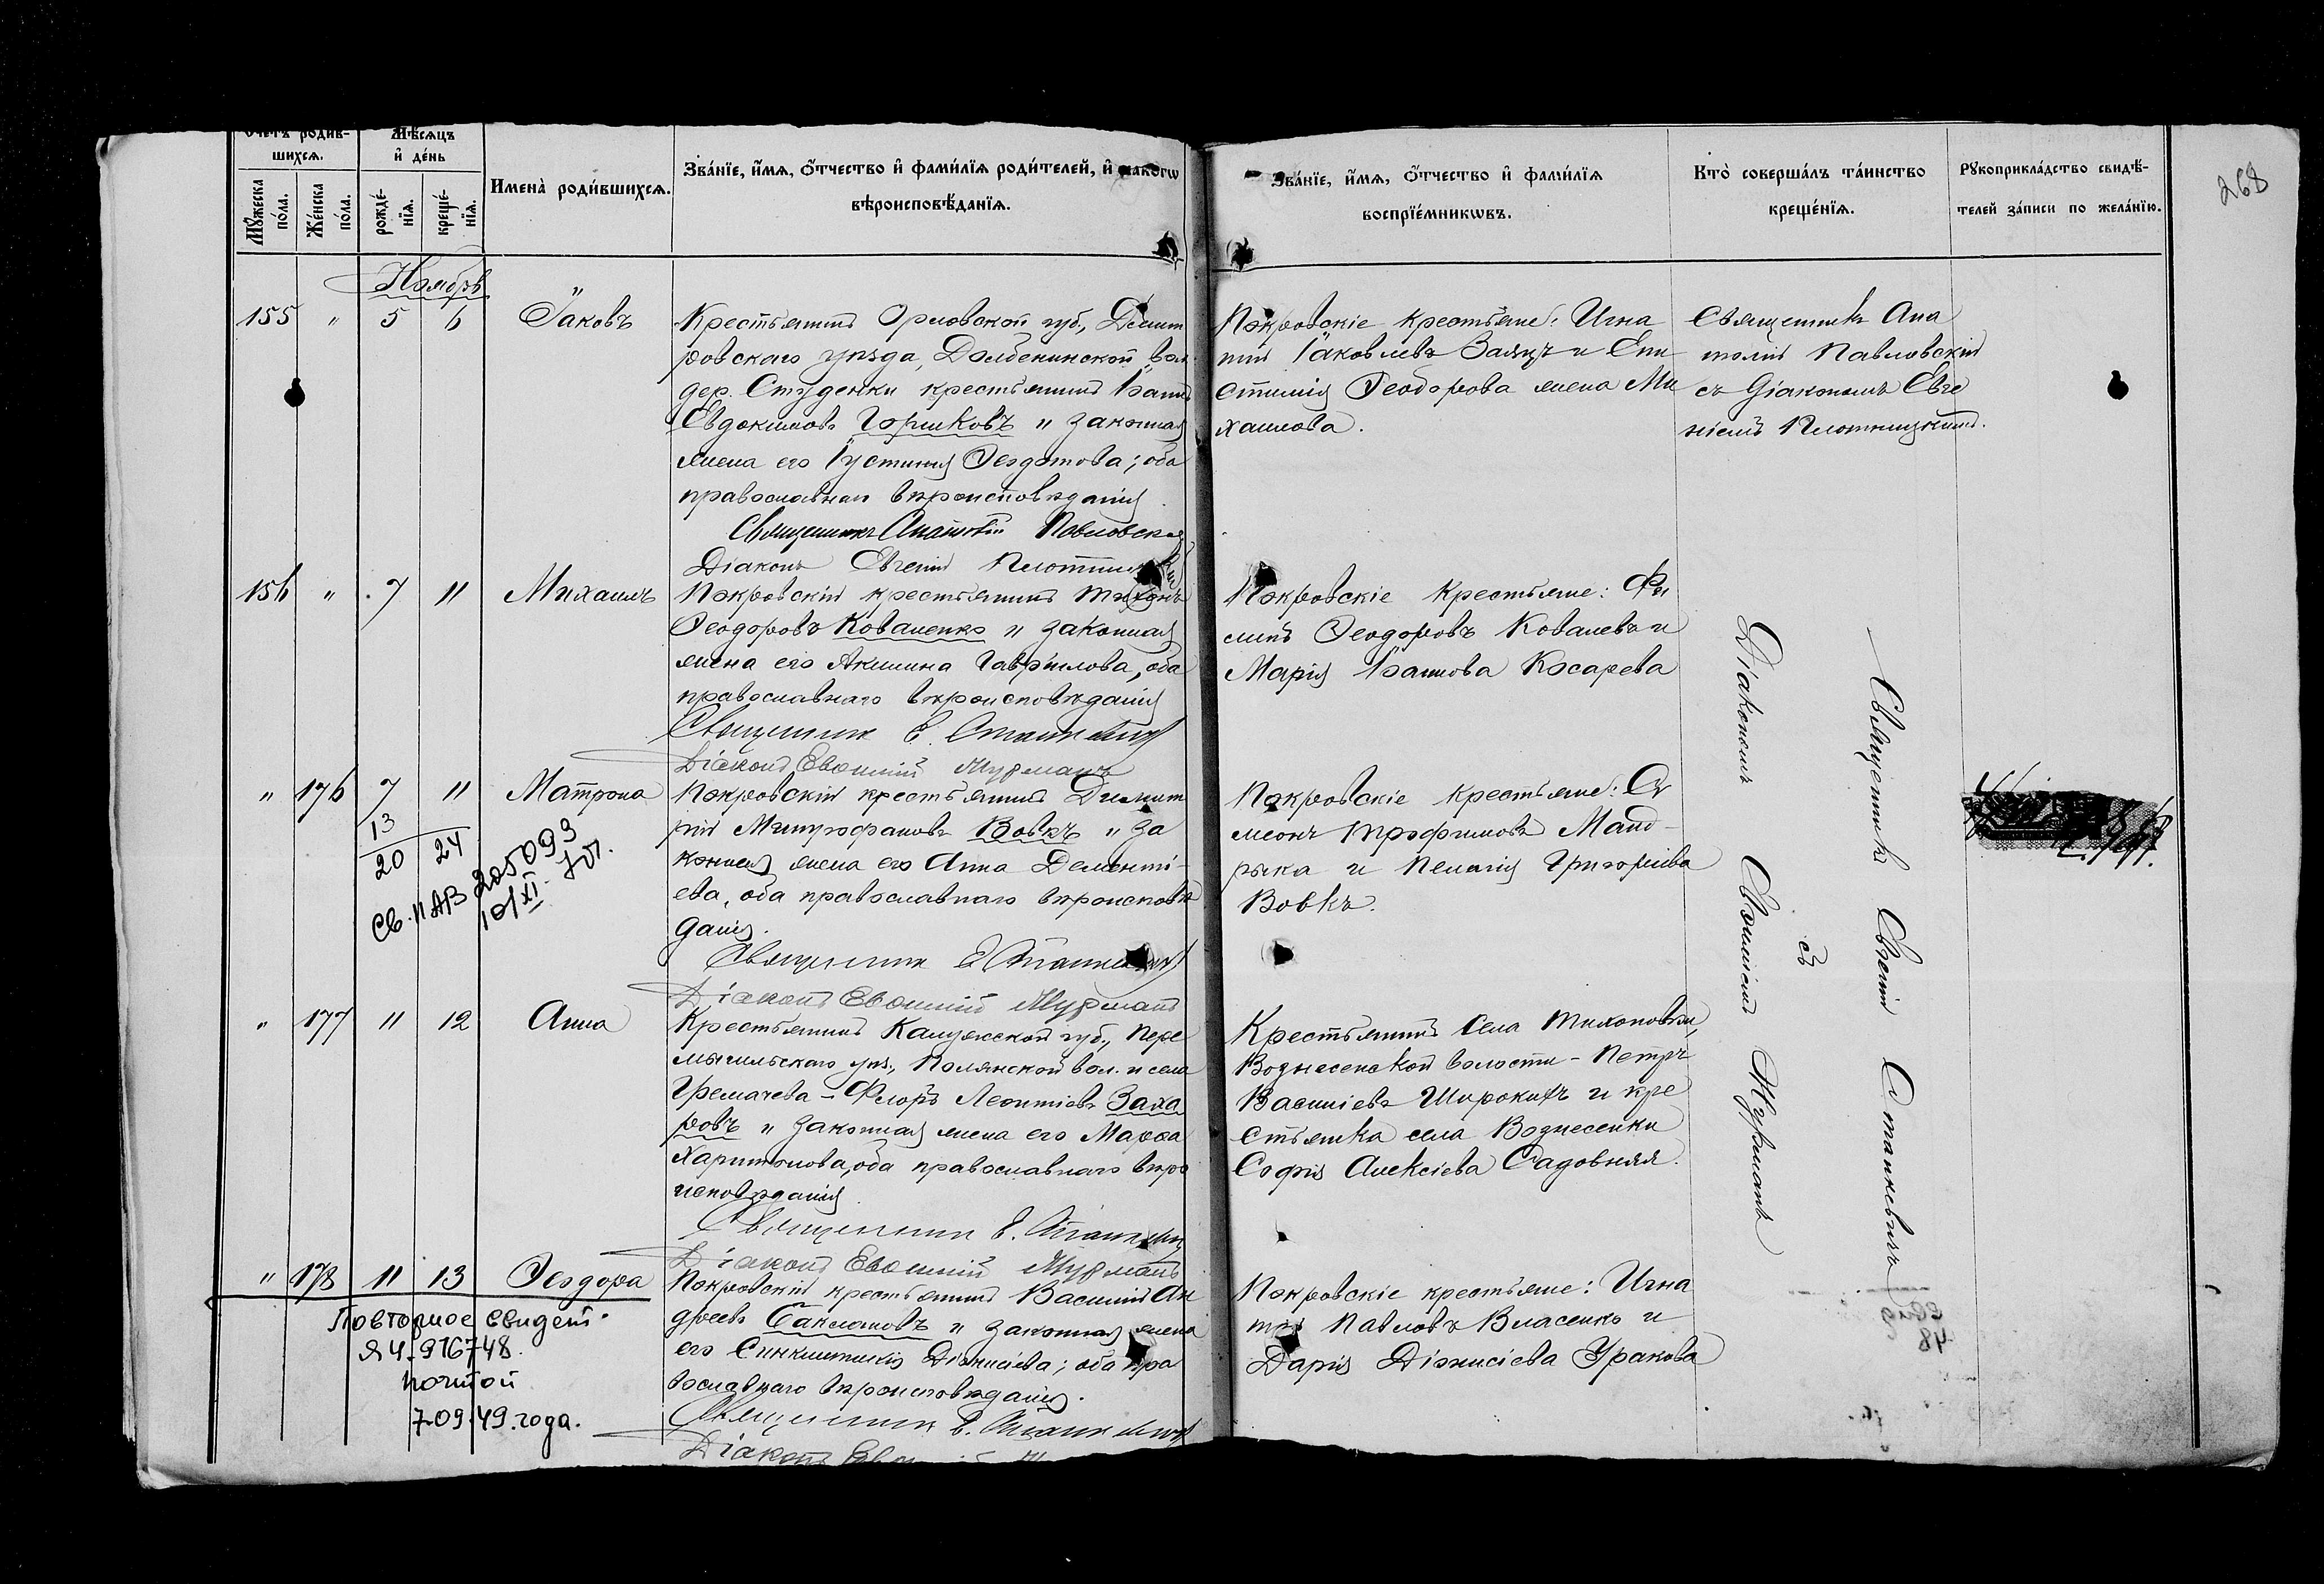 Счетъ родив-
шихся.
Мѣсяцъ
и день
Мужеска пола.
Женска пола.
рожде-
нія.
креще-
нія.
Имена родившихся.
Званіе, имя, отчество и фамилія родителей, и какогω
вѣроисповѣданія.
Званіе, имя, отчество и фамилія
воспріемникωвъ.
Кто совершалъ таинство
крещенія.
Рукоприкладство свидѣ-
телей записи по желанію.
268
Ноябрь
155 " 5 6 Іаковъ
Крестьянинъ Орловской губ., Дмит
ровскаго уѣзда, Долбенинской вол.
дер. Студенки крестьянинъ Іоаннъ
Евдокимовъ Горшковъ и законная
жена его Іустинія Ѳеодотова; оба
православнаго вѣроисповѣданія
Священникъ Анатолій Павловскій
Діаконъ Евгеній
Покровскіе крестьяне: Игна
тій Іаковлевъ Заяцъ и Епи
стимія Ѳеодорова жена Ми
хаилова.
Священникъ Ана
толій Павловскій
съ Діакономъ Евге
ніемъ Плотницкимъ.
156 " 7 11 Михаилъ
Покровскій крестьянинъ Тихонъ
Ѳеодоровъ Коваленко и законная
жена его Акилина Гаврилова, оба
православнаго вѣроисповѣданія
Священник Е. Станкевич
Діаконъ Евѳимій Журманъ
Покровскіе крестьяне: Фи
липъ Ѳеодоровъ Ковалевъ и
Марія Іоаннова Косарева
" 176 7 11 Матрона
13
20 24
Св. II АВ 205093
10/XI
Покровскій крестьянинъ Димит
рій Митрофановъ Вовкъ и за
конная жена его Анна Дементі-
ева, оба православнаго вѣроисповѣ
данія.
Священник Е. Станкевич
Діаконъ Евѳимій Журманъ
Покровскіе крестьяне: Си
меонъ Трофимовъ Манд-
рыка и Пелагія Григоріева
Вовкъ.
" 177 11 12 Анна
Крестьянинъ Калужской губ., Пере
мышльскаго уѣз., Полянской вол. и села
Гремачева - Флоръ Леонтіевъ Заха
ровъ и законная жена его Марѳа
Харитонова, оба православнаго вѣро
исповѣданія
Священник Е. Станкевич
Діаконъ Евѳимій Журманъ
Крестьянинъ села Тихоновки,
Вознесенской волости - Петръ
Василіевъ Широкихъ и кре
стьянка села Вознесенки
Софія Алексіева Садовняя.
" 178 11 13 Ѳеодора
Повторное свидет.
ЯЧ. 916748.
почтой
7-09.49. года.
Покровскій крестьянинъ Василій Ан
дреевъ Саклаковъ и законная жена
его Синклитикія Діонисіева; оба пра
вославнаго вѣроисповѣданія.
Священник Е. Станкевич
Діаконъ
Покровскіе крестьяне: Игна
тій Павловъ Власенко и
Дарія Діонисіева Уракова
Священникъ Евгеній Станкевичъ
съ
Діакономъ Евѳиміемъ Журманъ